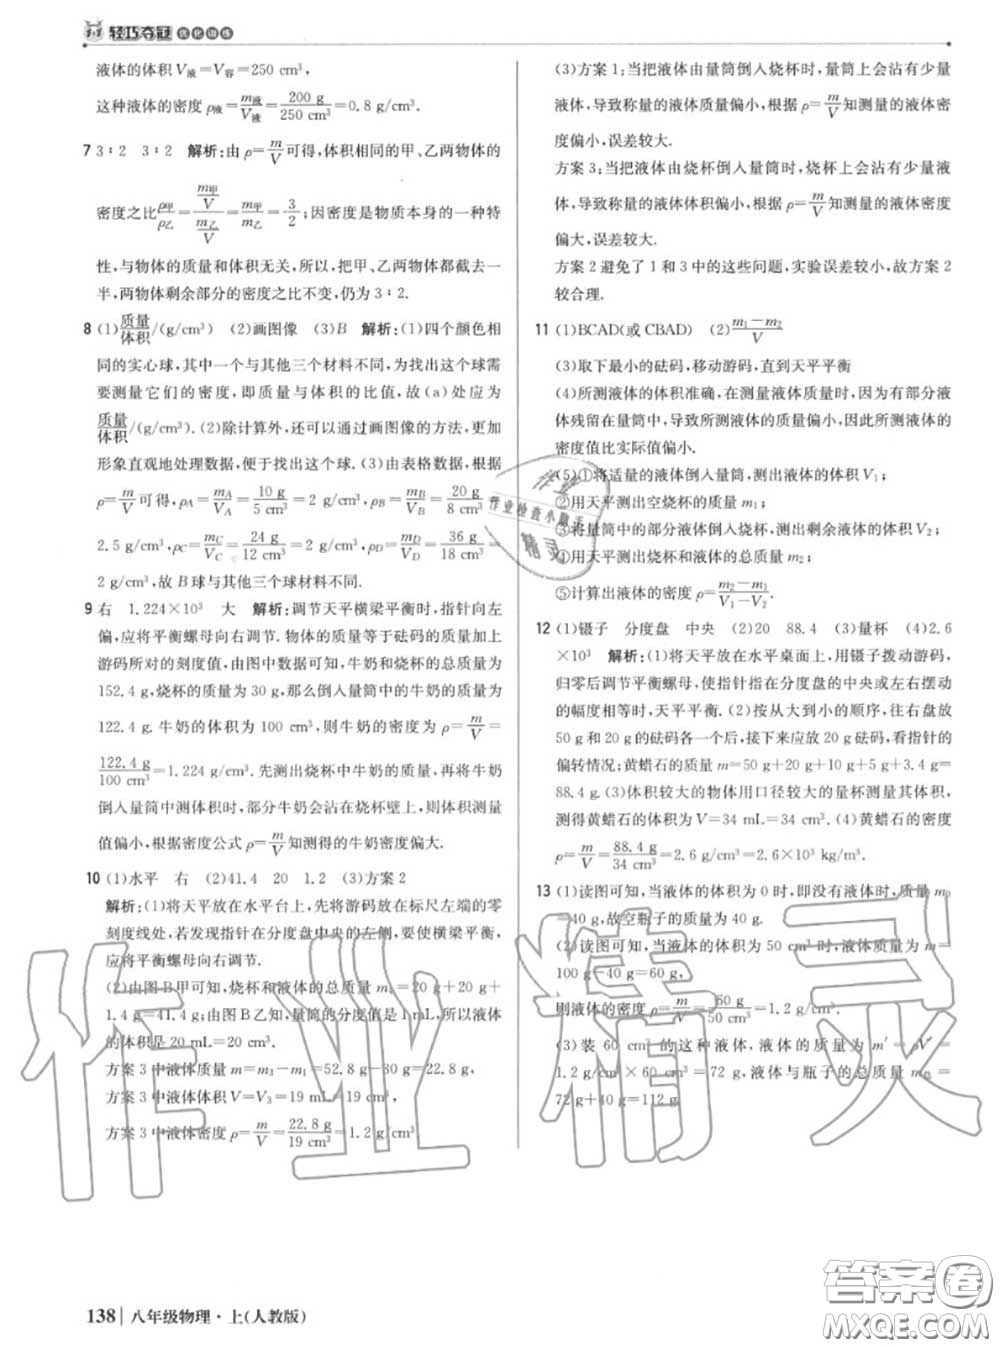 轻巧夺冠 优化训练
液体的体积 V液=V容=250 cm³,
这种液体的密度 ρ液=m液/V液=200 g/250 cm³=0.8 g/cm³.
7 3∶2 3∶2 解析:由 ρ=m/V可得,体积相同的甲、乙两物体的
密度之比ρ甲/ρ乙=(m甲/V)/(m乙/V)=m甲/m乙=3/2;因密度是物质本身的一种特
性,与物体的质量和体积无关,所以,把甲、乙两物体都截去一
半,两物体剩余部分的密度之比不变,仍为 3∶2.
8 (1)质量/体积/(g/cm³) (2)画图像 (3)B 解析:(1)四个颜色相
同的实心球,其中一个与其他三个材料不同,为找出这个球
需要测量它们的密度,即质量与体积的比值,故(a)处应为
质量/体积/(g/cm³).(2)除计算外,还可以通过画图像的方法,更加
形象直观地处理数据,便于找出这个球.(3)由表格数据,根据
ρ=m/V可得,ρA=mA/VA=10 g/5 cm³=2 g/cm³,ρB=mB/VB=20 g/8 cm³=
2.5 g/cm³,ρC=mC/VC=24 g/12 cm³=2 g/cm³,ρD=mD/VD=36 g/18 cm³=
2 g/cm³,故 B 球与其他三个球材料不同.
9 右 1.224×10³ 大 解析:调节天平横梁平衡时,指针向左
偏,应将平衡螺母向右调节.物体的质量等于砝码的质量加上
游码所对的刻度值,由图中数据可知,牛奶和烧杯的总质量为
152.4 g,烧杯的质量为 30 g,那么倒入量筒中的牛奶的质量为
122.4 g.牛奶的体积为 100 cm³,则牛奶的密度为 ρ=m/V=
122.4 g/100 cm³=1.224 g/cm³.先测出烧杯中牛奶的质量,再将牛奶
倒入量筒中测体积时,部分牛奶会沾在烧杯壁上,则体积测量
值偏小,根据密度公式 ρ=m/V知测得的牛奶密度偏大.
10 (1)水平 右 (2)41.4 20 1.2 (3)方案 2
解析:(1)将天平放在水平台上,先将游码放在标尺左端的零
刻度线处,若发现指针在分度盘中央的左侧,要使横梁平衡,
应将平衡螺母向右调节.
(2)由图 B 甲可知,烧杯和液体的总质量 m=20 g+20 g+
1.4 g=41.4 g;由图 B 乙知,量筒的分度值是 1 mL,所以液体
的体积是 20 mL=20 cm³.
方案 3 中液体质量 m=m₃-m₁=52.8 g-30 g=22.8 g,
方案 3 中液体体积 V=V₃=19 mL=19 cm³,
方案 3 中液体密度 ρ=m/V=22.8 g/19 cm³=1.2 g/cm³.
(3)方案 1:当把液体由量筒倒入烧杯时,量筒上会沾有少量
液体,导致称量的液体质量偏小,根据 ρ=m/V知测量的液体密
度偏小,误差较大.
方案 3:当把液体由烧杯倒入量筒时,烧杯上会沾有少量液
体,导致称量的液体体积偏小,根据 ρ=m/V知测量的液体密度
偏大,误差较大.
方案 2 避免了 1 和 3 中的这些问题,实验误差较小,故方案 2
较合理.
11 (1)BCAD(或 CBAD) (2)m₁-m₂/V
(3)取下最小的砝码,移动游码,直到天平平衡
(4)所测液体的体积准确,在测量液体质量时,因为有部分液
体残留在量筒中,导致所测液体的质量偏小,因此所测液体的
密度值比实际值偏小.
(5)①将适量的液体倒入量筒,测出液体的体积 V₁;
②用天平测出空烧杯的质量 m₁;
③将量筒中的部分液体倒入烧杯,测出剩余液体的体积 V₂;
④用天平测出烧杯和液体的总质量 m₂;
⑤计算出液体的密度 ρ=m₂-m₁/V₁-V₂.
12 (1)镊子 分度盘 中央 (2)20 88.4 (3)量杯 (4)2.6
×10³ 解析:(1)将天平放在水平桌面上,用镊子拨动游码,
归零后调节平衡螺母,使指针指在分度盘的中央或左右摆动
的幅度相等时,天平平衡.(2)按从大到小的顺序,往右盘放
50 g 和 20 g 的砝码各一个后,接下来应放 20 g 砝码,看指针的
偏转情况;黄蜡石的质量 m=50 g+20 g+10 g+5 g+3.4 g=
88.4 g.(3)体积较大的物体用口径较大的量杯测量其体积,
测得黄蜡石的体积为 V=34 mL=34 cm³.(4)黄蜡石的密度
ρ=m/V=88.4 g/34 cm³=2.6 g/cm³=2.6×10³ kg/m³.
13 (1)读图可知,当液体的体积为 0 时,即没有液体时,质量 m
=40 g,故空瓶子的质量为 40 g.
(2)读图可知,当液体的体积为 50 cm³ 时,液体的质量 m=
100 g-40 g=60 g,
则液体的密度 ρ=m/V=60 g/50 cm³=1.2 g/cm³.
(3)装 60 cm³ 的这种液体,液体的质量为 m′=ρV′=
1.2 g/cm³×60 cm³=72 g,液体与瓶子的总质量 m总=
72 g+40 g=112 g.
作业
作业检查小助手
精灵
作业精灵
138 八年级物理·上(人教版)
答案圈
MXQE.COM